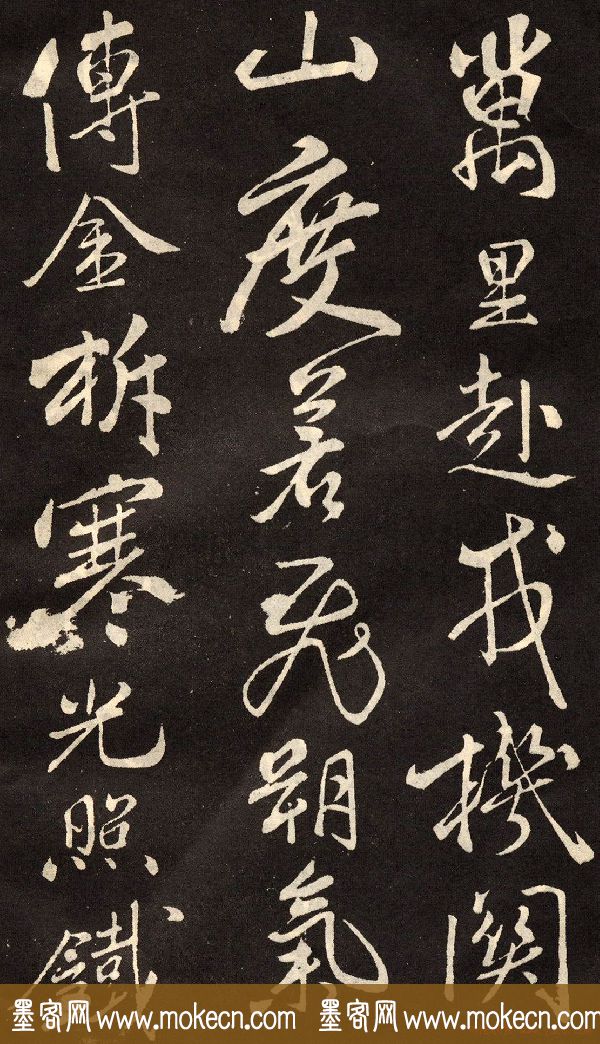 萬里赴戎機關
山度若飛朔氣
傳金柝寒光照鐵
墨客网 www.mokecn.com 墨客网 www.mokecn.com